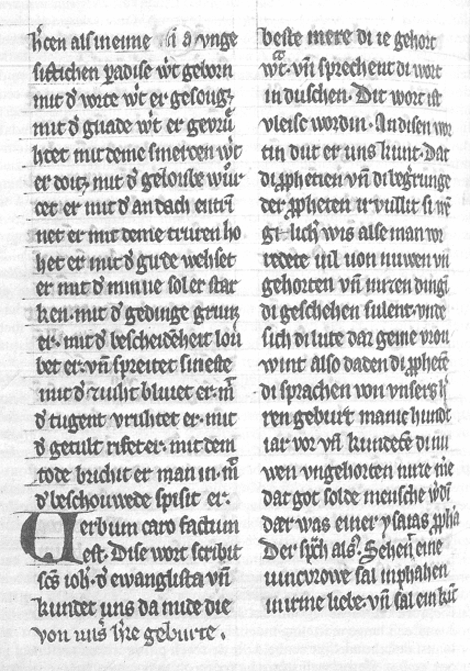 h'cen als in eime vnge
sittichen padise w't geborn
mit d' worte w't er gesoug
mit d' gnade w't er
htet mit deme smercen w't
er mit d' geloube
cet er mit d' andach
net er mit deme truren ho
het er mit d' gu'de wehset
er mit d' minne sol er star
ken. mit d' gedinge
er. mit d' bescheidēheit
bet er. vn̄ spreitet sin este
mit d' zusht bluwet er. m̄
d' tugent vruhtet er. mit
d' getult rifet er. mit dem
tode brichit er man in. m̄
d' beschouwede spisit er.
Uerbum caro factum
est. Dise wort scribit
scs ioh'. d' ewanglista vn̄
kundet uns da mide die
von uns' h're geburte.
beste mere di ie gehort
w't. vn̄ sprechent di wort
in duschen. Dit wort ist
vleisc wordin. An disen wor
tin dut er uns kunt. Dat
di pphetien vn̄ di beg'runge
der ppheten ir vullit si
lich' wis alse man vor
redete vil von nuwen vn̄
gehorten vn̄ vrzen dingī
di geschehen sulent. vnde
sich di lute dar geine vrou
wint also daden di pphetē
di sprachen von unsers h'
ren geburt manic hundt
iar vor vn̄ kundetē di nu
wen vngehorten mre
dat got solde mensche w'dī
daer was einer ysaias ppha
Der spch als'. Sehent eine
iuncvrowe sal inphahen
in irme liebe. vn̄ sal ein kīt